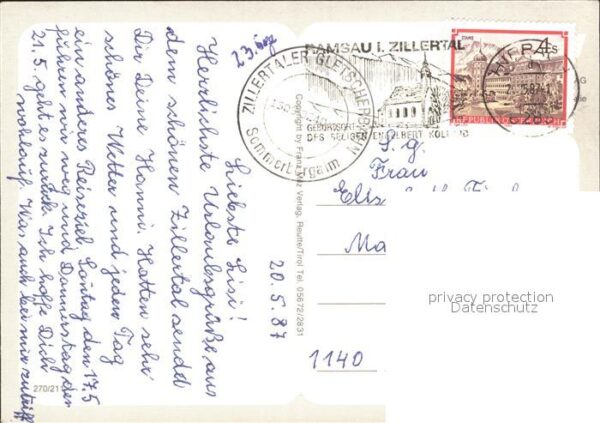 23. 
Liebste Lisi!
Herzlichste Urlaubsgrüße aus
dem schönen Zillertal sendet
Dir Deine Hanni. Hatten sehr
schönes Wetter und jeden Tag
ein anderes Reiseziel. Sontag den 17.5
fuhren wir weg und Donnerstag den
21.5. geht es zurück. Ich hoffe Dich
wohlauf. Was auch bei mir zutrifft
20.5.87
270/21
Copyright by Franz Verlag, Reutte/Tirol Tel. 05672/2831
ZILLERTALER GLETSCHERBAHN
Sommerbergalm
RAMSAU I. ZILLERTAL
GEBURTSORT
DES SELIGEN
STAMS
4
S
REPUBLIK ÖSTERREICH
S.g.
Frau
Ma
1140
privacy protection
Datenschutz